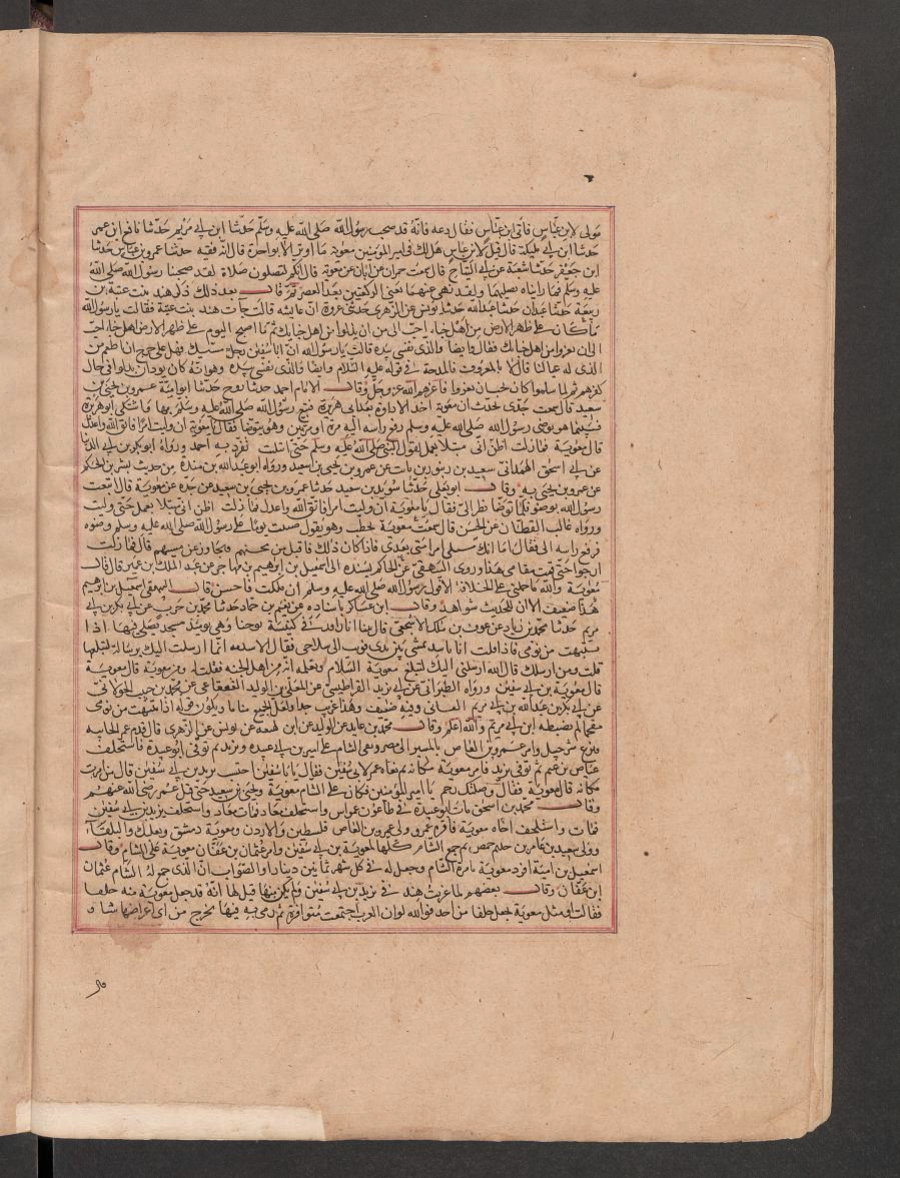 مولى لابن عباس فاتى ابن عباس فقال دعه فانه قد صحب رسول الله صلى الله عليه وسلم حدثنا ابن ابي مريم حدثنا نافع ابن عمر
حدثنا ابن ابي مليكة قال قيل لابن عباس هل لك في امير المؤمنين معوية ما اوتر الا بواحدة قال انه فقيه حدثنا عمرو بن عباس حدثنا
ابن جعفر حدثنا شعبة عن ابي التياح قال سمعت حمران عن ابان عن معوية قال انكم لتصلون صلاة لقد صحبنا رسول الله صلى الله
عليه وسلم فما رايناه يصليهما ولقد نهى عنهما يعنى الركعتين بعد العصر ثم قال بعد ذلك ذكر هند بنت عتبة بن
ربيعة حدثنا عبدان حدثنا عبد الله حدثنا يونس عن الزهري حدثني عروة ان عايشه قالت جات هند بنت عتبة فقالت يا رسول الله
ما كان على ظهر الارض من اهل خباء احب الى من ان يذلوا من اهل خبايك ثم ما اصبح اليوم على ظهر الارض اهل خباء احب
الى ان يعزوا من اهل خبايك فقال وايضا والذي نفسي بيده قالت يا رسول الله ان ابا سفين رجل مسيك فهل على حرج ان اطعم من
الذي له عيالنا قال لا الا بالمعروف فالمدحة في قوله عليه السلام وايضا والذي نفسي بيده وهو انه كان يود ان يذلوا في حال
كفرهم ثم لما اسلموا كان يحب ان يعزوا فاعزهم الله عز وجل وقال الامام احمد حدثنا روح حدثنا ابو امية عمرو بن يحيى بن
سعيد قال سمعت جدي يحدث ان معوية اخذ الاداوة بعد ابي هريرة فتبع رسول الله صلى الله عليه وسلم بها واشتكى ابو هريرة
فبينما هو يوضي رسول الله صلى الله عليه وسلم رفع راسه اليه مرة او مرتين وهو يتوضا فقال يا معوية ان وليت امرا فاتق الله واعدل
قال معوية فما زلت اظن اني مبتلا بعمل لقول النبي صلى الله عليه وسلم حتى ابتليت تفرد به احمد ورواه ابو بكر بن ابي الدنيا
عن ابي اسحق الهمداني سعيد بن زنبور بن ثابت عن عمرو بن يحيى بن سعيد ورواه ابو عبد الله بن منده من حديث بشر بن الحكم
عن عمرو بن يحيى به وقال ابو يعلى حدثنا سويد بن سعيد حدثنا عمرو بن يحيى بن سعيد عن جده عن معوية قال اتبعت
رسول الله بوضو فلما توضا نظر الى فقال يا معوية ان وليت امرا فاتق الله واعدل فما زلت اظن اني مبتلا بعمل حتى وليت
ورواه غالب القطان عن الحسن قال سمعت معوية يخطب وهو يقول صببت يوما على رسول الله صلى الله عليه وسلم وضوه
فرفع راسه الى فقال اما انك ستلي امر امتي بعدي فاذا كان ذلك فاقبل من محسنهم وتجاوز عن مسيهم قال فما زلت
ارجوا حتى قمت مقامي هذا وروى البيهقي عن الحاكم بسنده الى اسمعيل بن ابراهيم بن مهاجر عن عبد الملك ابن عمير قال قال
معوية والله ما حملني على الخلافة الا قول رسول الله صلى الله عليه وسلم ان ملكت فاحسن قال البيهقي اسمعيل بن ابراهيم
هذا ضعيف الا ان للحديث شواهد وقال ابن عساكر باسناده عن نعيم بن حماد حدثنا محمد بن حرب عن ابي بكر بن ابي
مريم حدثنا محمد بن زياد عن عوف بن مالك الاشجعي قال بينا انا راقد في كنيسة يوحنا وهي يومئذ مسجد يصلى فيها اذا
تنبهت من نومي فاذا انا باسد يمشي بين يدي فوثب الى سلاحي فقال الاسد مه انما ارسلت اليك برسالة لتبلغها
قلت ومن ارسلك قال الله ارسلني اليك لتبلغ معوية السلام وتعلمه انه من اهل الجنه فقلت له ومن معوية قال معوية
قال معوية بن ابي سفين ورواه الطبراني عن ابي يزيد القراطيسي عن المعلى بن الوليد القعقاعي عن محمد بن حبيب الخولاني
عن ابي بكر بن عبد الله بن ابي مريم الغساني وفيه ضعف وهذا غريب جدا ولعل الجميع مناما ويكون قوله اذا انتبهت من نومي
مقحما لم يضبطه ابن ابي مريم والله اعلم وقال محمد بن عايذ عن الوليد عن ابن لهيعة عن يونس عن الزهري قال قدم عمر الجابيه
فنزع شرحبيل وامر عمرو بن العاص بالمسير الى مصر وبقى الشام على اميرين ابي عبيده ويزيد ثم توفى ابو عبيدة فاستخلف
عياض بن غنم ثم توفى يزيد فامر معوية مكانه ثم نعاه عمر لابي سفين فقال يا ابا سفين احتسب يزيد بن ابي سفين قال من امرت
مكانه قال معوية فقال وصلتك رحم يا امير المؤمنين فكان على الشام معوية وعمير بن سعيد حتى قتل عمر رضي الله عنهم
وقال محمد بن اسحق مات ابو عبيدة في طاعون عمواس واستخلف معاذ فمات معاذ واستخلف يزيد بن ابي سفين
فمات واستخلف اخاه معوية فاقره عمر وولى عمرو بن العاص فلسطين والاردن ومعوية دمشق وبعلبك والبلقاء
وولى سعيد بن عامر بن حذيم حمص ثم جمع الشام كلها لمعوية بن ابي سفين وامر عثمان بن عفان معوية على الشام وقال
اسمعيل بن امية افرد معوية بامرة الشام وجعل له في كل شهر ثمانين دينارا والصواب ان الذي جمع له الشام عثمان
ابن عفان وقال بعضهم لما عزيت هند في يزيد بن ابي سفين ولم يكن منها قيل لها انه قد جعل معوية منه خلفا
فقالت او مثل معوية يجعل خلفا من احد فوالله لو ان العرب اجتمعت متوافرة ثم رمى به فيها لخرج من اي اعراضها شا و